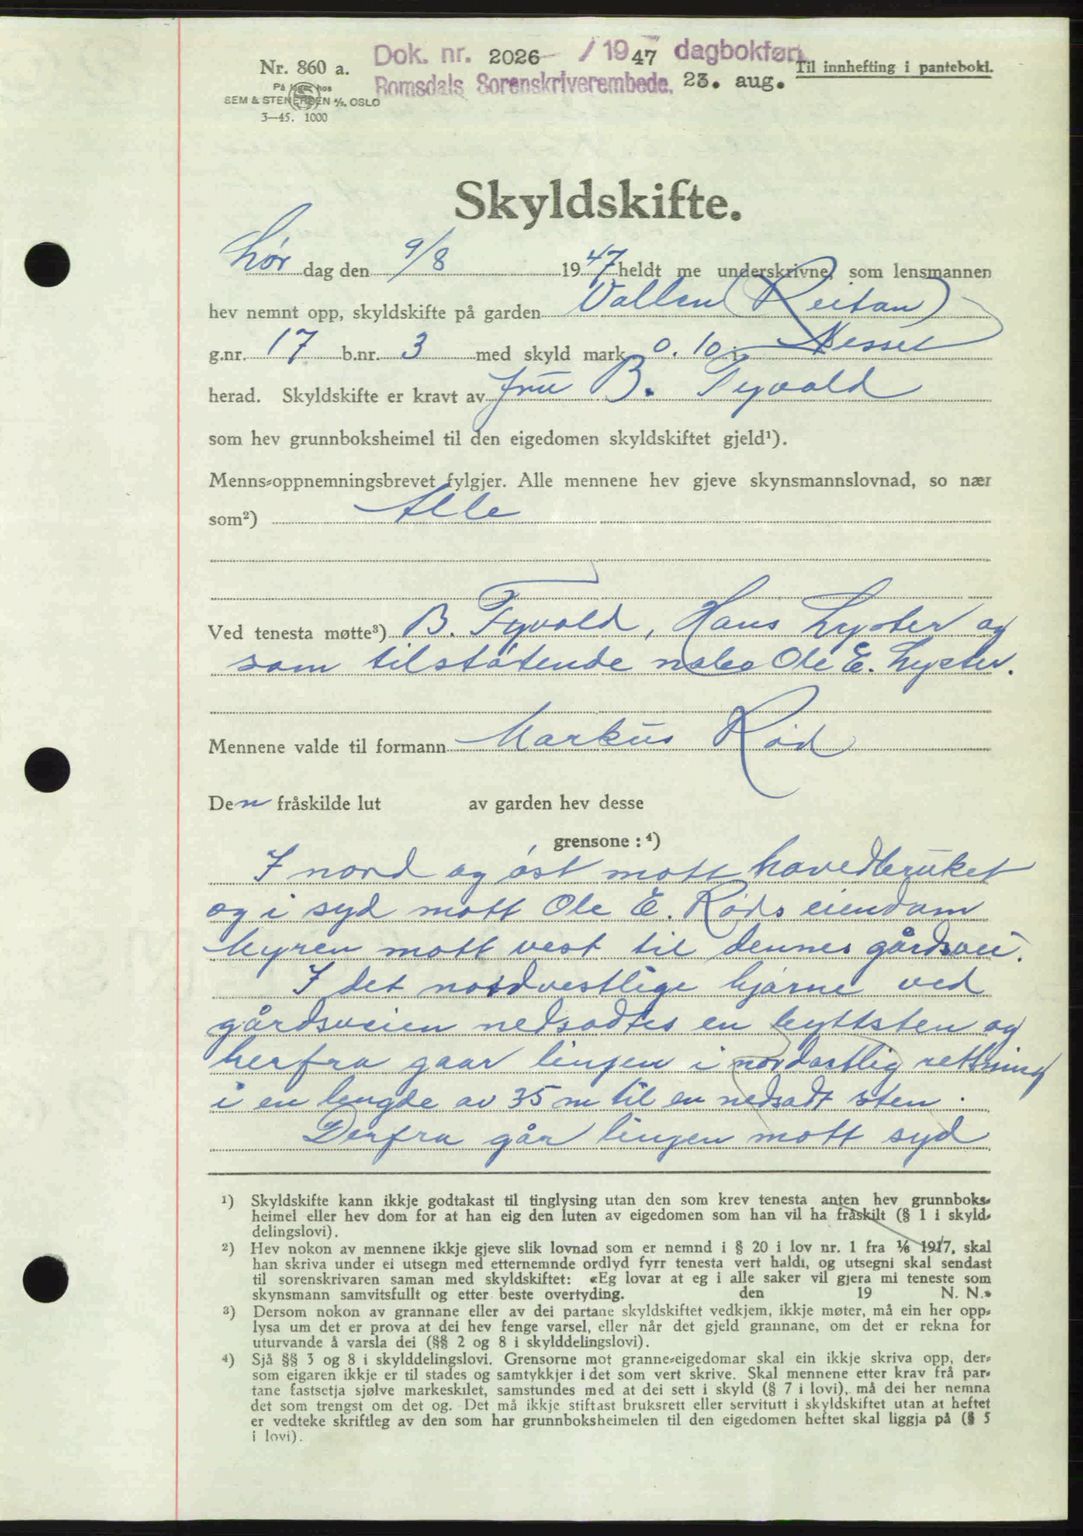 Dok. nr. 2026 / 1947 dagbokført
Nr. 860 a.
Til innhefting i pantebokj.
Romsdals Sorenskriverembede, 23. aug.
På lager hos
SEM & STENERSEN A/S, OSLO
3—45. 1000
Skyldskifte.
Lør dag den 9/8 1947 heldt me underskrivne, som lensmannen
hev nemnt opp, skyldskifte på garden Vollen (Reitan)
g.nr. 17 b.nr. 3 med skyld mark 0.10 i Nesset
herad. Skyldskifte er kravt av fru B. Tyvold
som hev grunnboksheimel til den eigedomen skyldskiftet gjeld¹).
Menns-oppnemningsbrevet fylgjer. Alle mennene hev gjeve skynsmannslovnad, so nær
som²) Alle
Ved tenesta møtte³) B. Tyvold, Hans Lyster og
som tilstøtende nabo Ole E. Lyster.
Mennene valde til formann Markus Rød
Den fråskilde lut av garden hev desse
grensone : ⁴)
I nord og øst mott hovedbruket
og i syd mott Ole E. Røds eiendom
Myren mott vest til dennes gårdsvei.
I det nordvestlige hjørne ved
gårdsveien nedsadtes en byttsten og
herfra gaar linjen i nordøstlig rettning
i en lengde av 35 m til en nedsadt sten.
Derfra går linjen mott syd
¹) Skyldskifte kann ikkje godtakast til tinglysing utan den som krev tenesta anten hev grunnboks-
heimel eller hev dom for at han eig den luten av eigedomen som han vil ha fråskilt (§ 1 i skyld-
delingslovi).
²) Hev nokon av mennene ikkje gjeve slik lovnad som er nemnd i § 20 i lov nr. 1 fra 1/6 1917, skal
han skriva under ei utsegn med etternemnde ordlyd fyrr tenesta vert haldi, og utsegni skal sendast
til sorenskrivaren saman med skyldskiftet: «Eg lovar at eg i alle saker vil gjera mi teneste som
skynsmann samvitsfullt og etter beste overtyding. den 19 N. N.»
³) Dersom nokon av grannane eller av dei partane skyldskiftet vedkjem, ikkje møter, må ein her opp-
lysa um det er prova at dei hev fenge varsel, eller når det gjeld grannane, om det er rekna for
uturvande å varsla dei (§§ 2 og 8 i skylddelingslovi).
⁴) Sjå §§ 3 og 8 i skylddelingslovi. Grensorne mot granne-eigedomar skal ein ikkje skriva opp, der-
som eigaren ikkje er til stades og samtykkjer i det som vert skrive. Skal mennene etter krav frå par-
tane fastsetja sjølve markeskilet, samstundes med at dei sett i skyld (§ 7 i lovi), må dei her nemna
det som trengst om det og. Det må ikkje stiftast bruksrett eller servitutt i skyldskiftet utan at heftet
er vedteke skriftleg av den som har grunnboksheimelen til den eigedomen heftet skal liggja på (§ 5
i lovi).